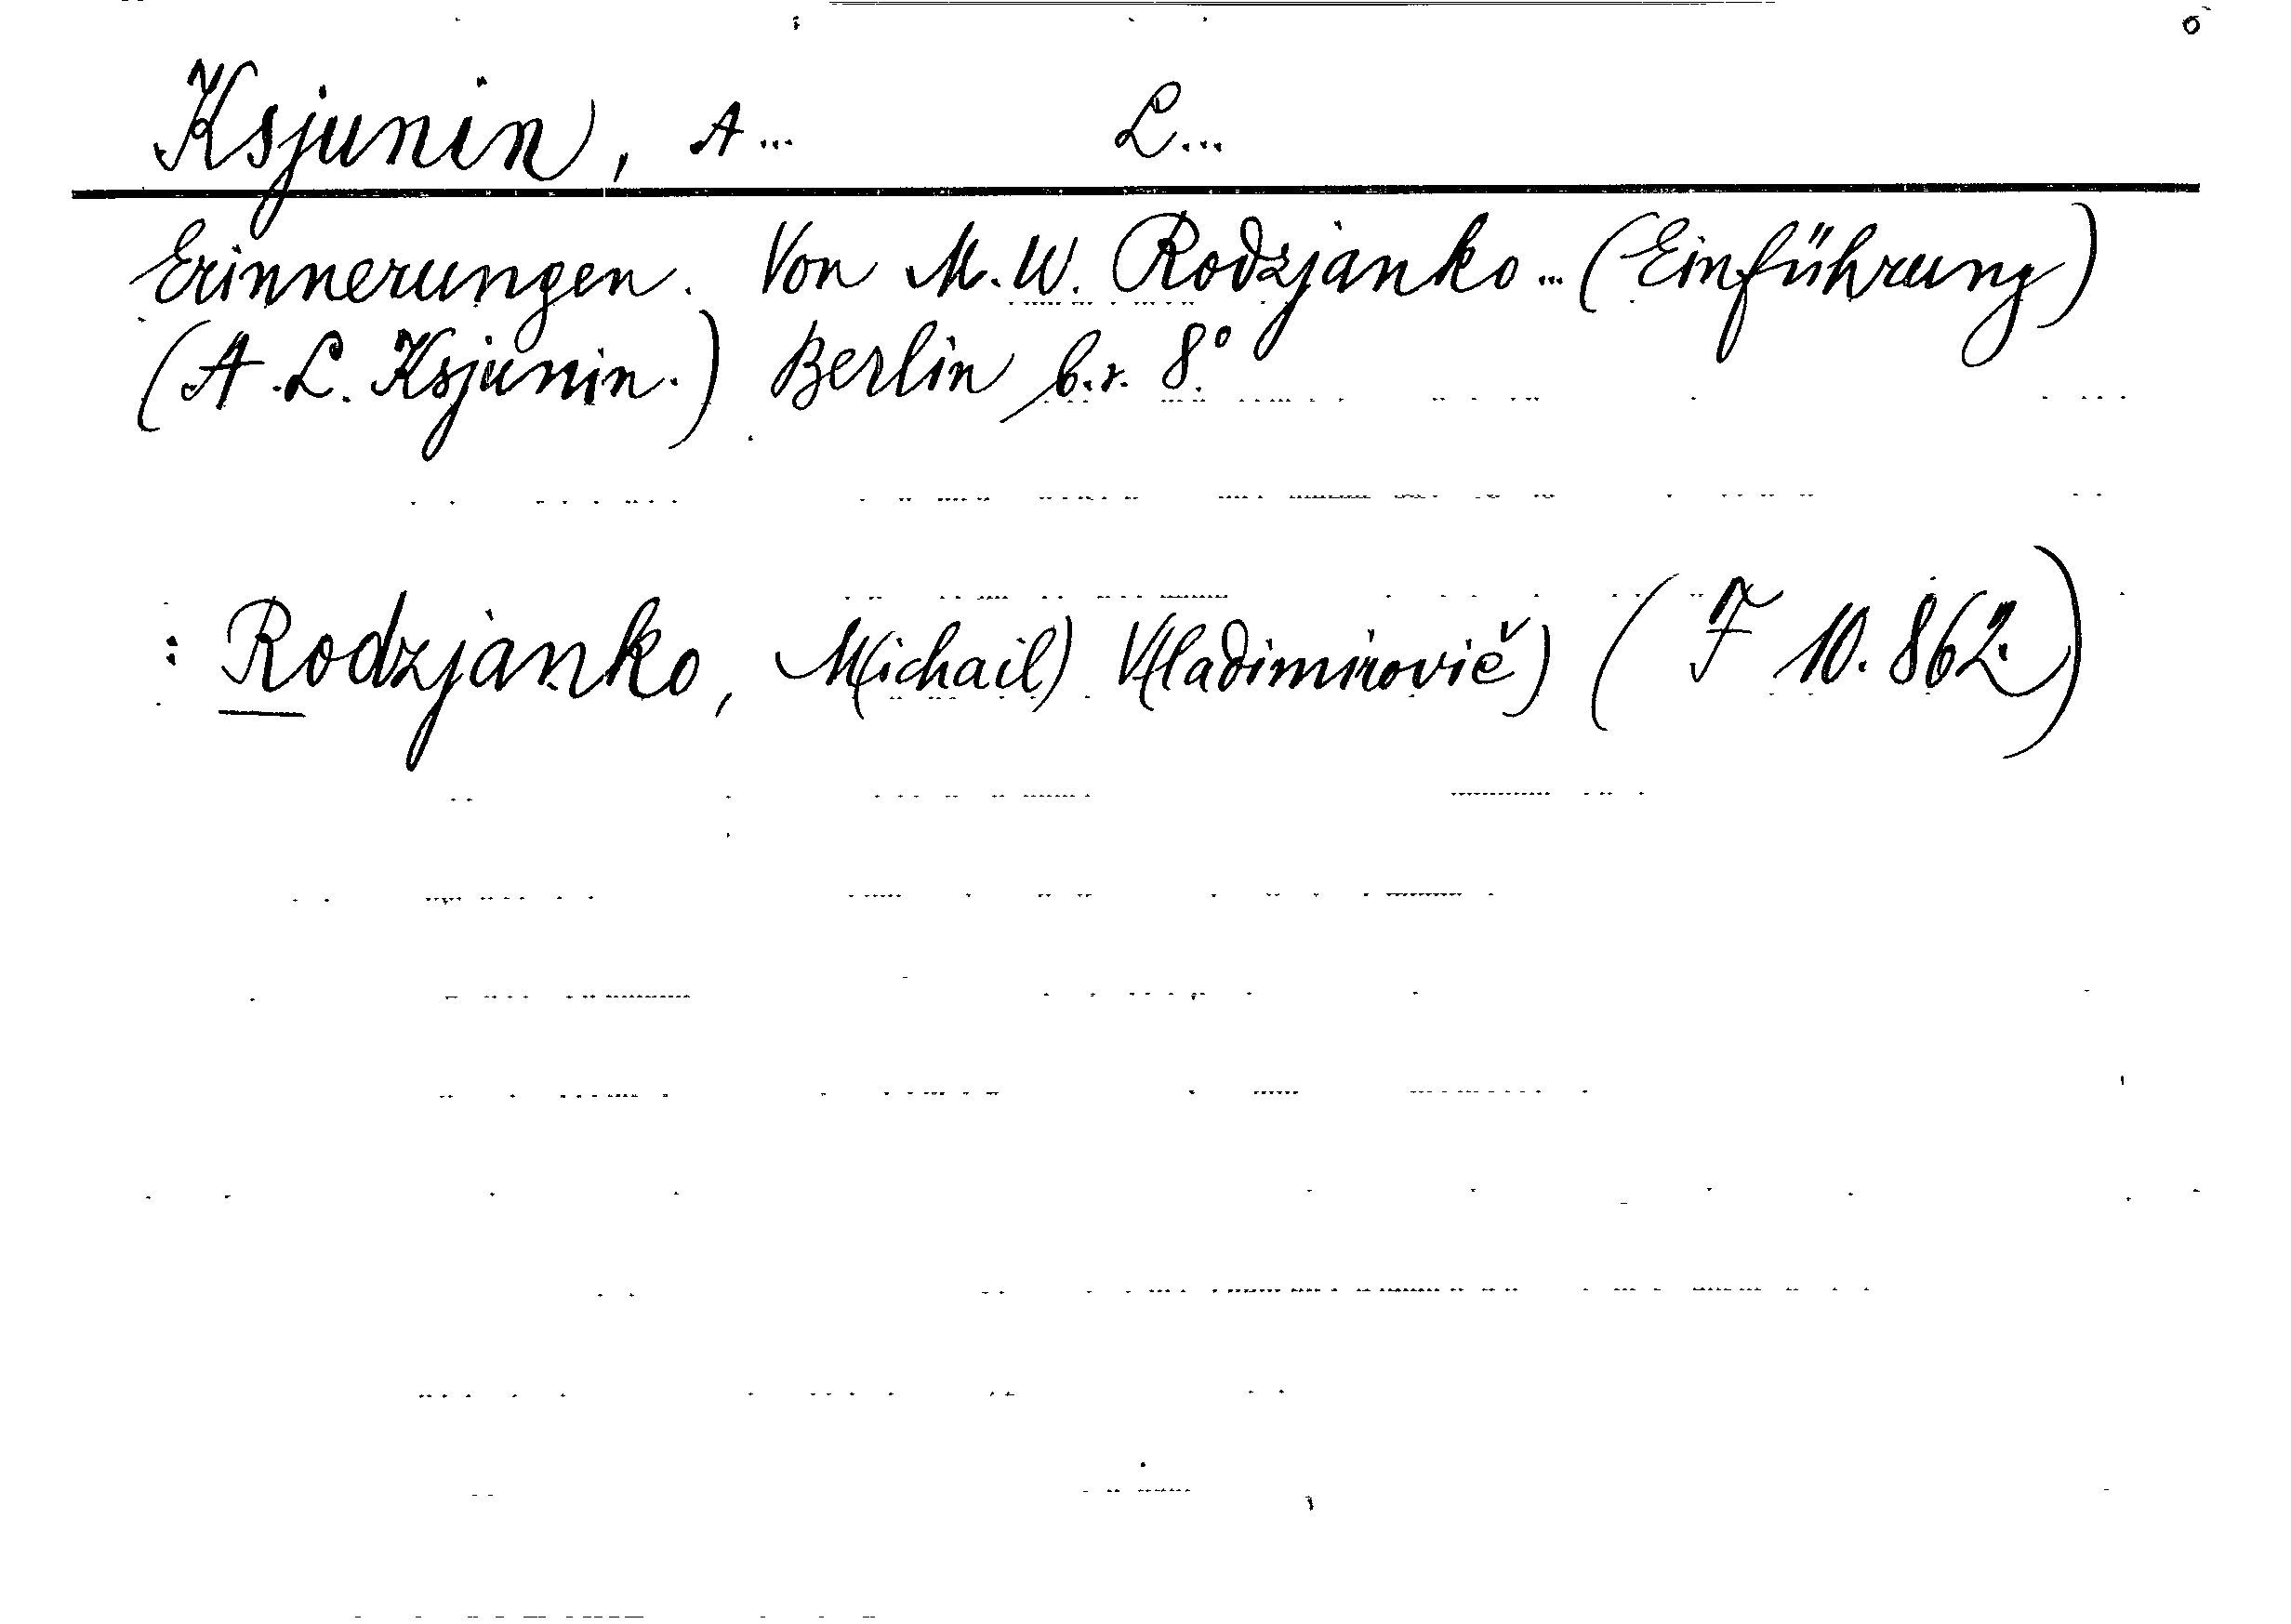 Ksjunin, A... L...
Erinnerungen. Von M. W. Rodzjanko... (Einführung)
(A. L. Ksjunin.) Berlin b.r. 8°
: Rodzjanko, M(ichail) V(ladimirovič) (F 10.862.)